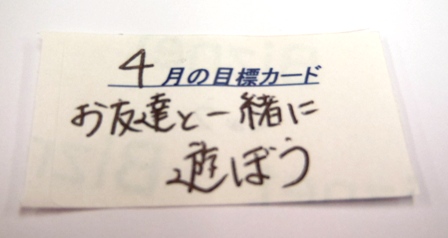 4月の目標カード
お友達と一緒に
遊ぼう